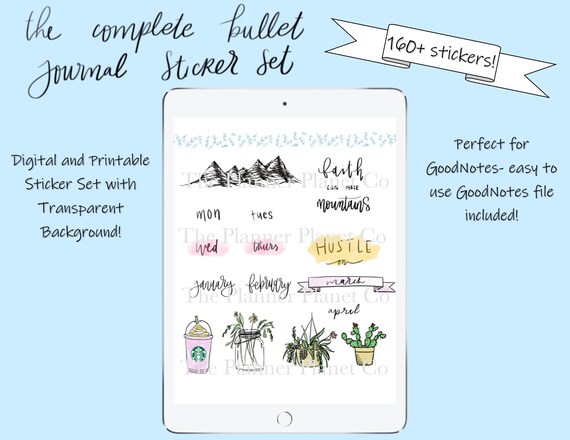 the complete bullet
journal sticker set
160+ stickers!
Digital and Printable
Sticker Set with
Transparent
Background!
Perfect for
GoodNotes- easy to
use GoodNotes file
included!
faith
can move
mountains
The Planner Planet Co
mon tues
The Planner Planet Co
wed thurs
HUSTLE
on
january february
march
The Planner Planet Co
april
The Planner Planet Co